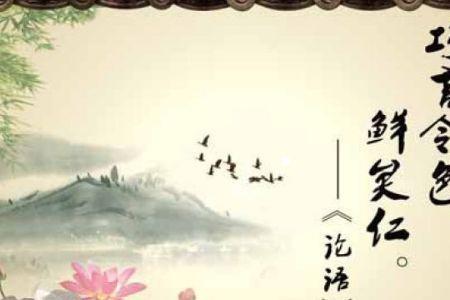 巧言令色
鲜矣仁。
——《论语